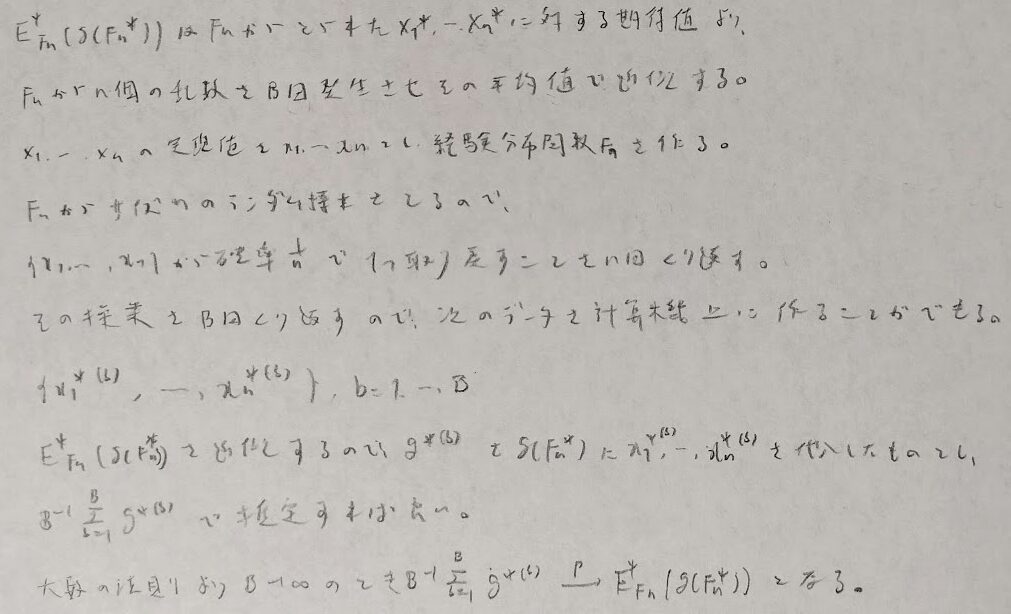 E*_{Fn}(g(Fn*)) は Fn からとられた X1*, …Xn* に対する期待値より、
Fn から n個の乱数を B回発生させその平均値で近似する。
X1, …, Xn の実現値を x1, … xn とし、経験分布関数 Fn を作る。
Fn からサイズ n のランダム標本をとるので、
{x1, …, xn} から確率 1/n で 1つ取り戻すことを n回くり返す。
その操業を B回くり返すので、次のデータを計算機上に作ることができる。
{x1*(b), …, xn*(b)}, b=1, …, B
E*_{Fn}(g(Fn*)) を近似するので、g*(b) を g(Fn*) に x1*(b), …, xn*(b) を代入したものとし、
B⁻¹ Σ_{b=1}^{B} g*(b) で推定すれば良い。
大数の法則より B→∞ のとき B⁻¹ Σ_{b=1}^{B} g*(b) →^P E*_{Fn}(g(Fn*)) となる。